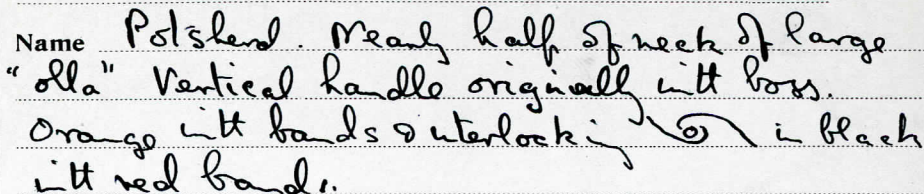 Name Potsherd. Nearly half of neck of large
"olla" Vertical handle originally with boss.
Orange with bands & interlocking in black
with red bands.